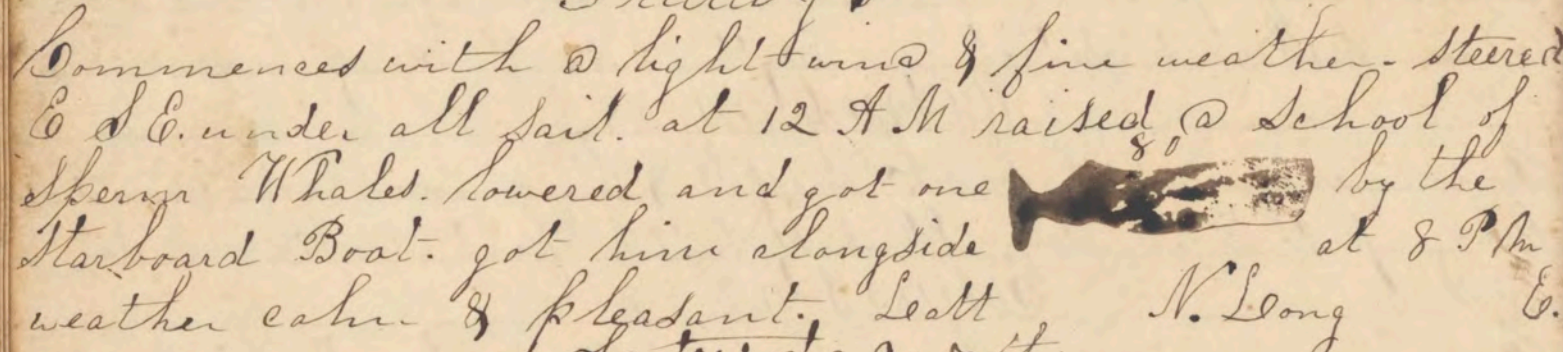 Commences with a light wind & fine weather. Steered
E S E. under all sail. at 12 A M raised a School of
Sperm Whales. lowered and got one 80 by the
Starboard Boat. got him alongside at 8 P M
weather calm & pleasant. Latt N. Long E.